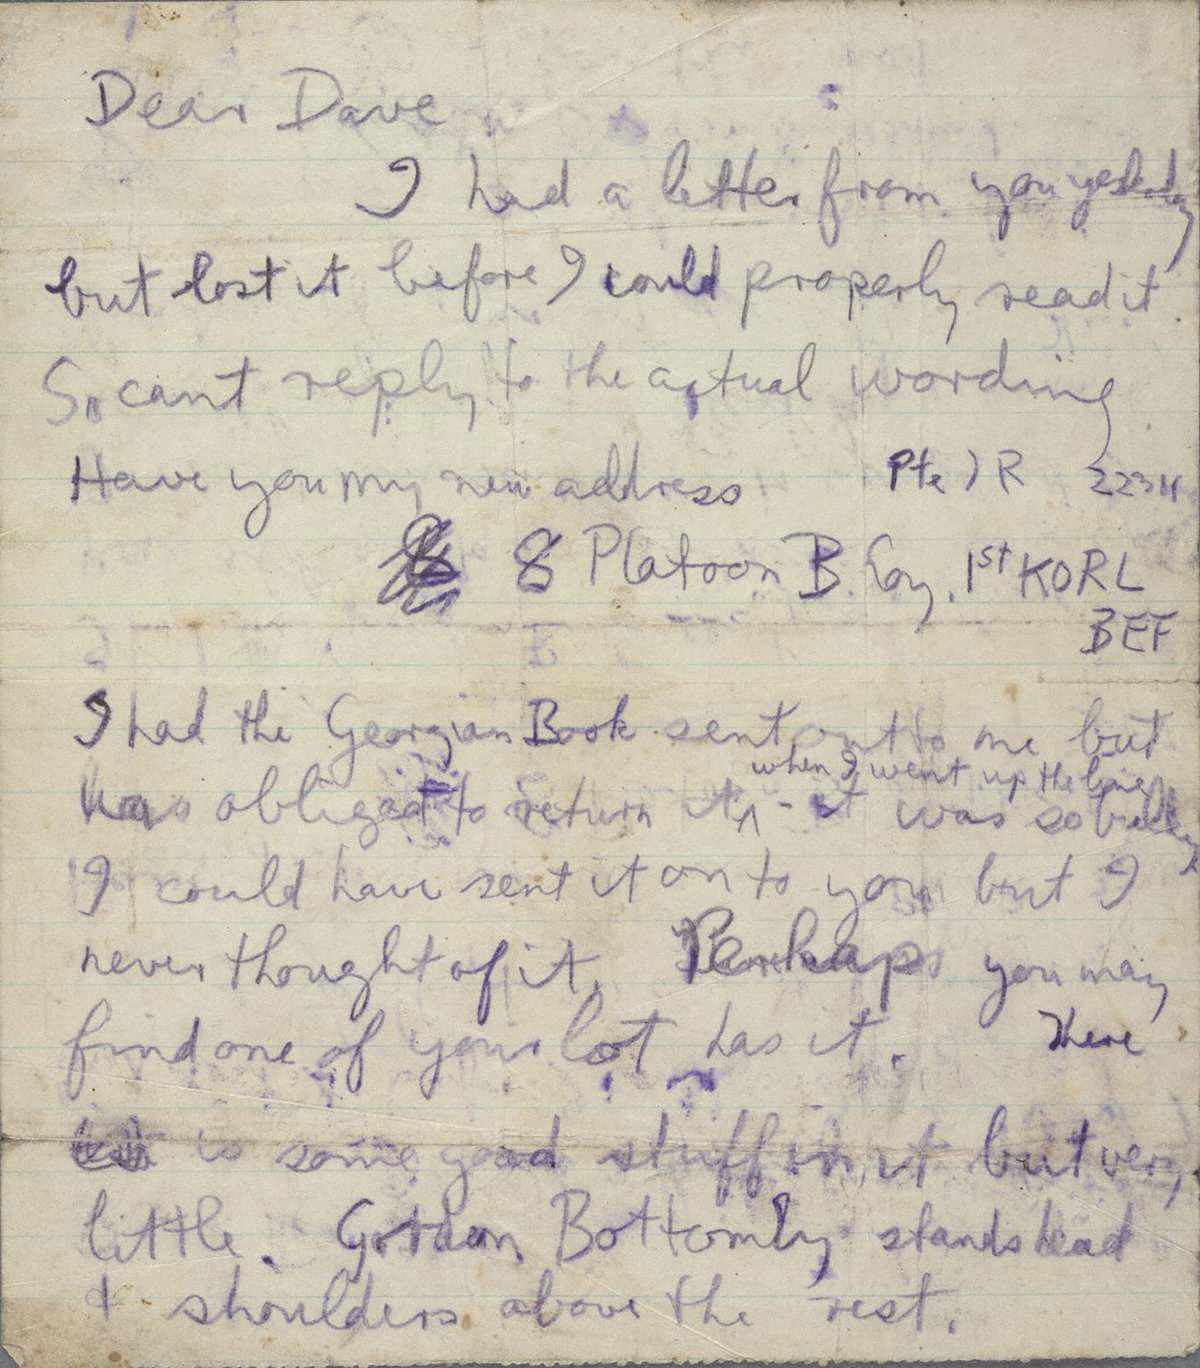 Dear Dave
I had a letter from you yesterday
but lost it before I could properly read it.
So cant reply to the actual wording
Have you my new address Pte I R 22311
8 Platoon B. Coy. 1st KORL
BEF
I had the Georgian Book sent out to me but
when I went up the line
was obliged to return it - it was so bulky
I could have sent it on to you but I
never thought of it. Perhaps you may
find one of your lot has it. There
is some good stuff in it but very
little. Gordon Bottomly stands head
& shoulders above the rest.